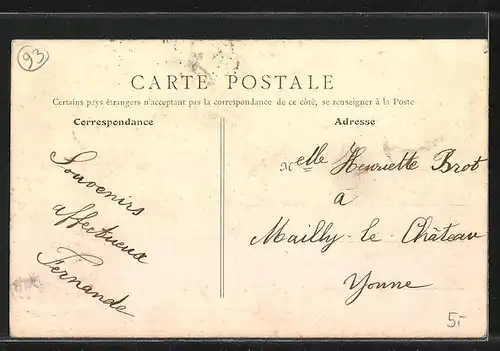 93
CARTE POSTALE
Certains pays étrangers n'acceptant pas la correspondance de ce côté, se renseigner à la Poste
Correspondance
Adresse
Souvenirs
affectueux
Fernande
Melle Henriette Brot
à
Mailly-le Château
Yonne
5.-